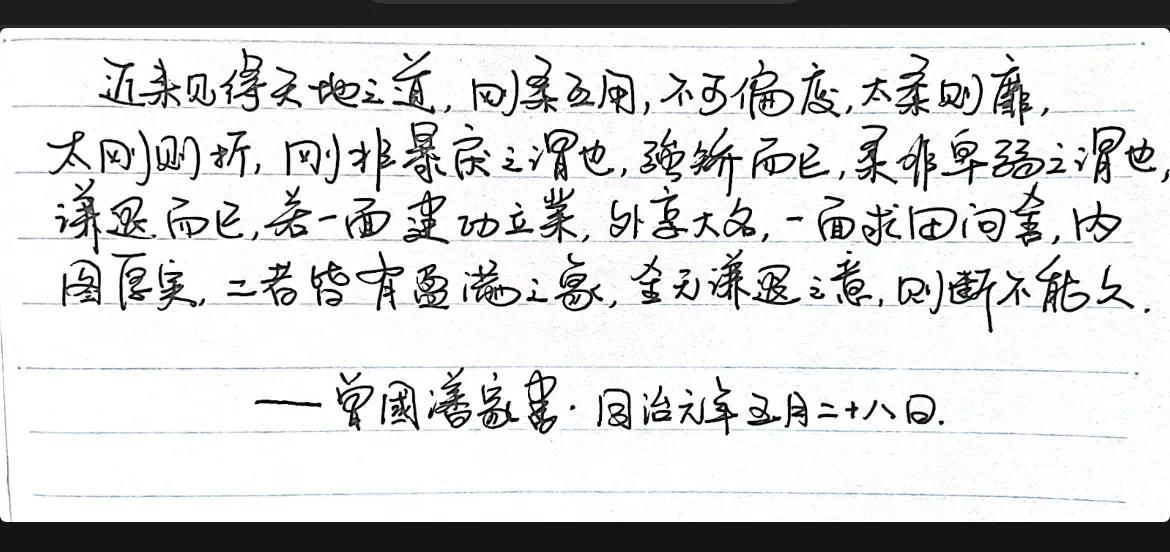 近来见得天地之道，刚柔互用，不可偏废，太柔则靡，
太刚则折，刚非暴戾之谓也，强矫而已，柔非卑弱之谓也，
谦退而已，若一面建功立業，外享大名，一面求田问舍，内
图厚实，二者皆有盈满之象，全无谦退之意，则断不能久.
——曾國藩家書·同治元年五月二十八日.